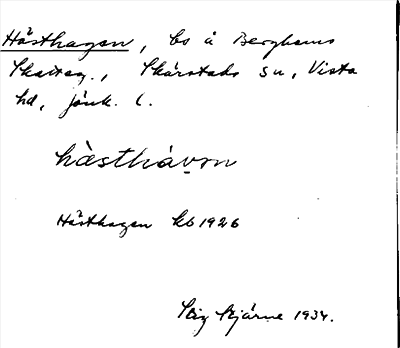 Hästhagen, bs å Berghems
Skatteg., Skärstads sn, Vista
hd, Jönk. l.
hàsthá̀vo̯n
Hästhagen kb 1926
Stig Stjärne 1934.